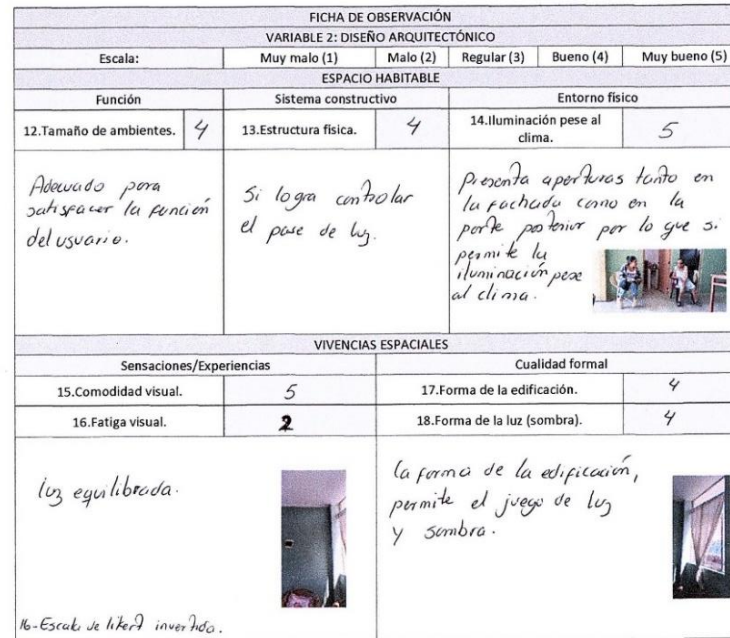 FICHA DE OBSERVACIÓN
VARIABLE 2: DISEÑO ARQUITECTÓNICO
Escala: Muy malo (1) Malo (2) Regular (3) Bueno (4) Muy bueno (5)
ESPACIO HABITABLE
Función Sistema constructivo Entorno físico
12.Tamaño de ambientes. 4 13.Estructura física. 4 14.Iluminación pese al clima. 5
Adecuado para
satisfacer la función
del usuario.
Si logra controlar
el pase de luz.
Presenta aperturas tanto en
la fachada como en la
parte posterior por lo que si
permite la
iluminación pese
al clima.
VIVENCIAS ESPACIALES
Sensaciones/Experiencias Cualidad formal
15.Comodidad visual. 5 17.Forma de la edificación. 4
16.Fatiga visual. 2 18.Forma de la luz (sombra). 4
luz equilibrada.
16-Escala de likert invertida.
la forma de la edificación,
permite el juego de luz
y sombra.